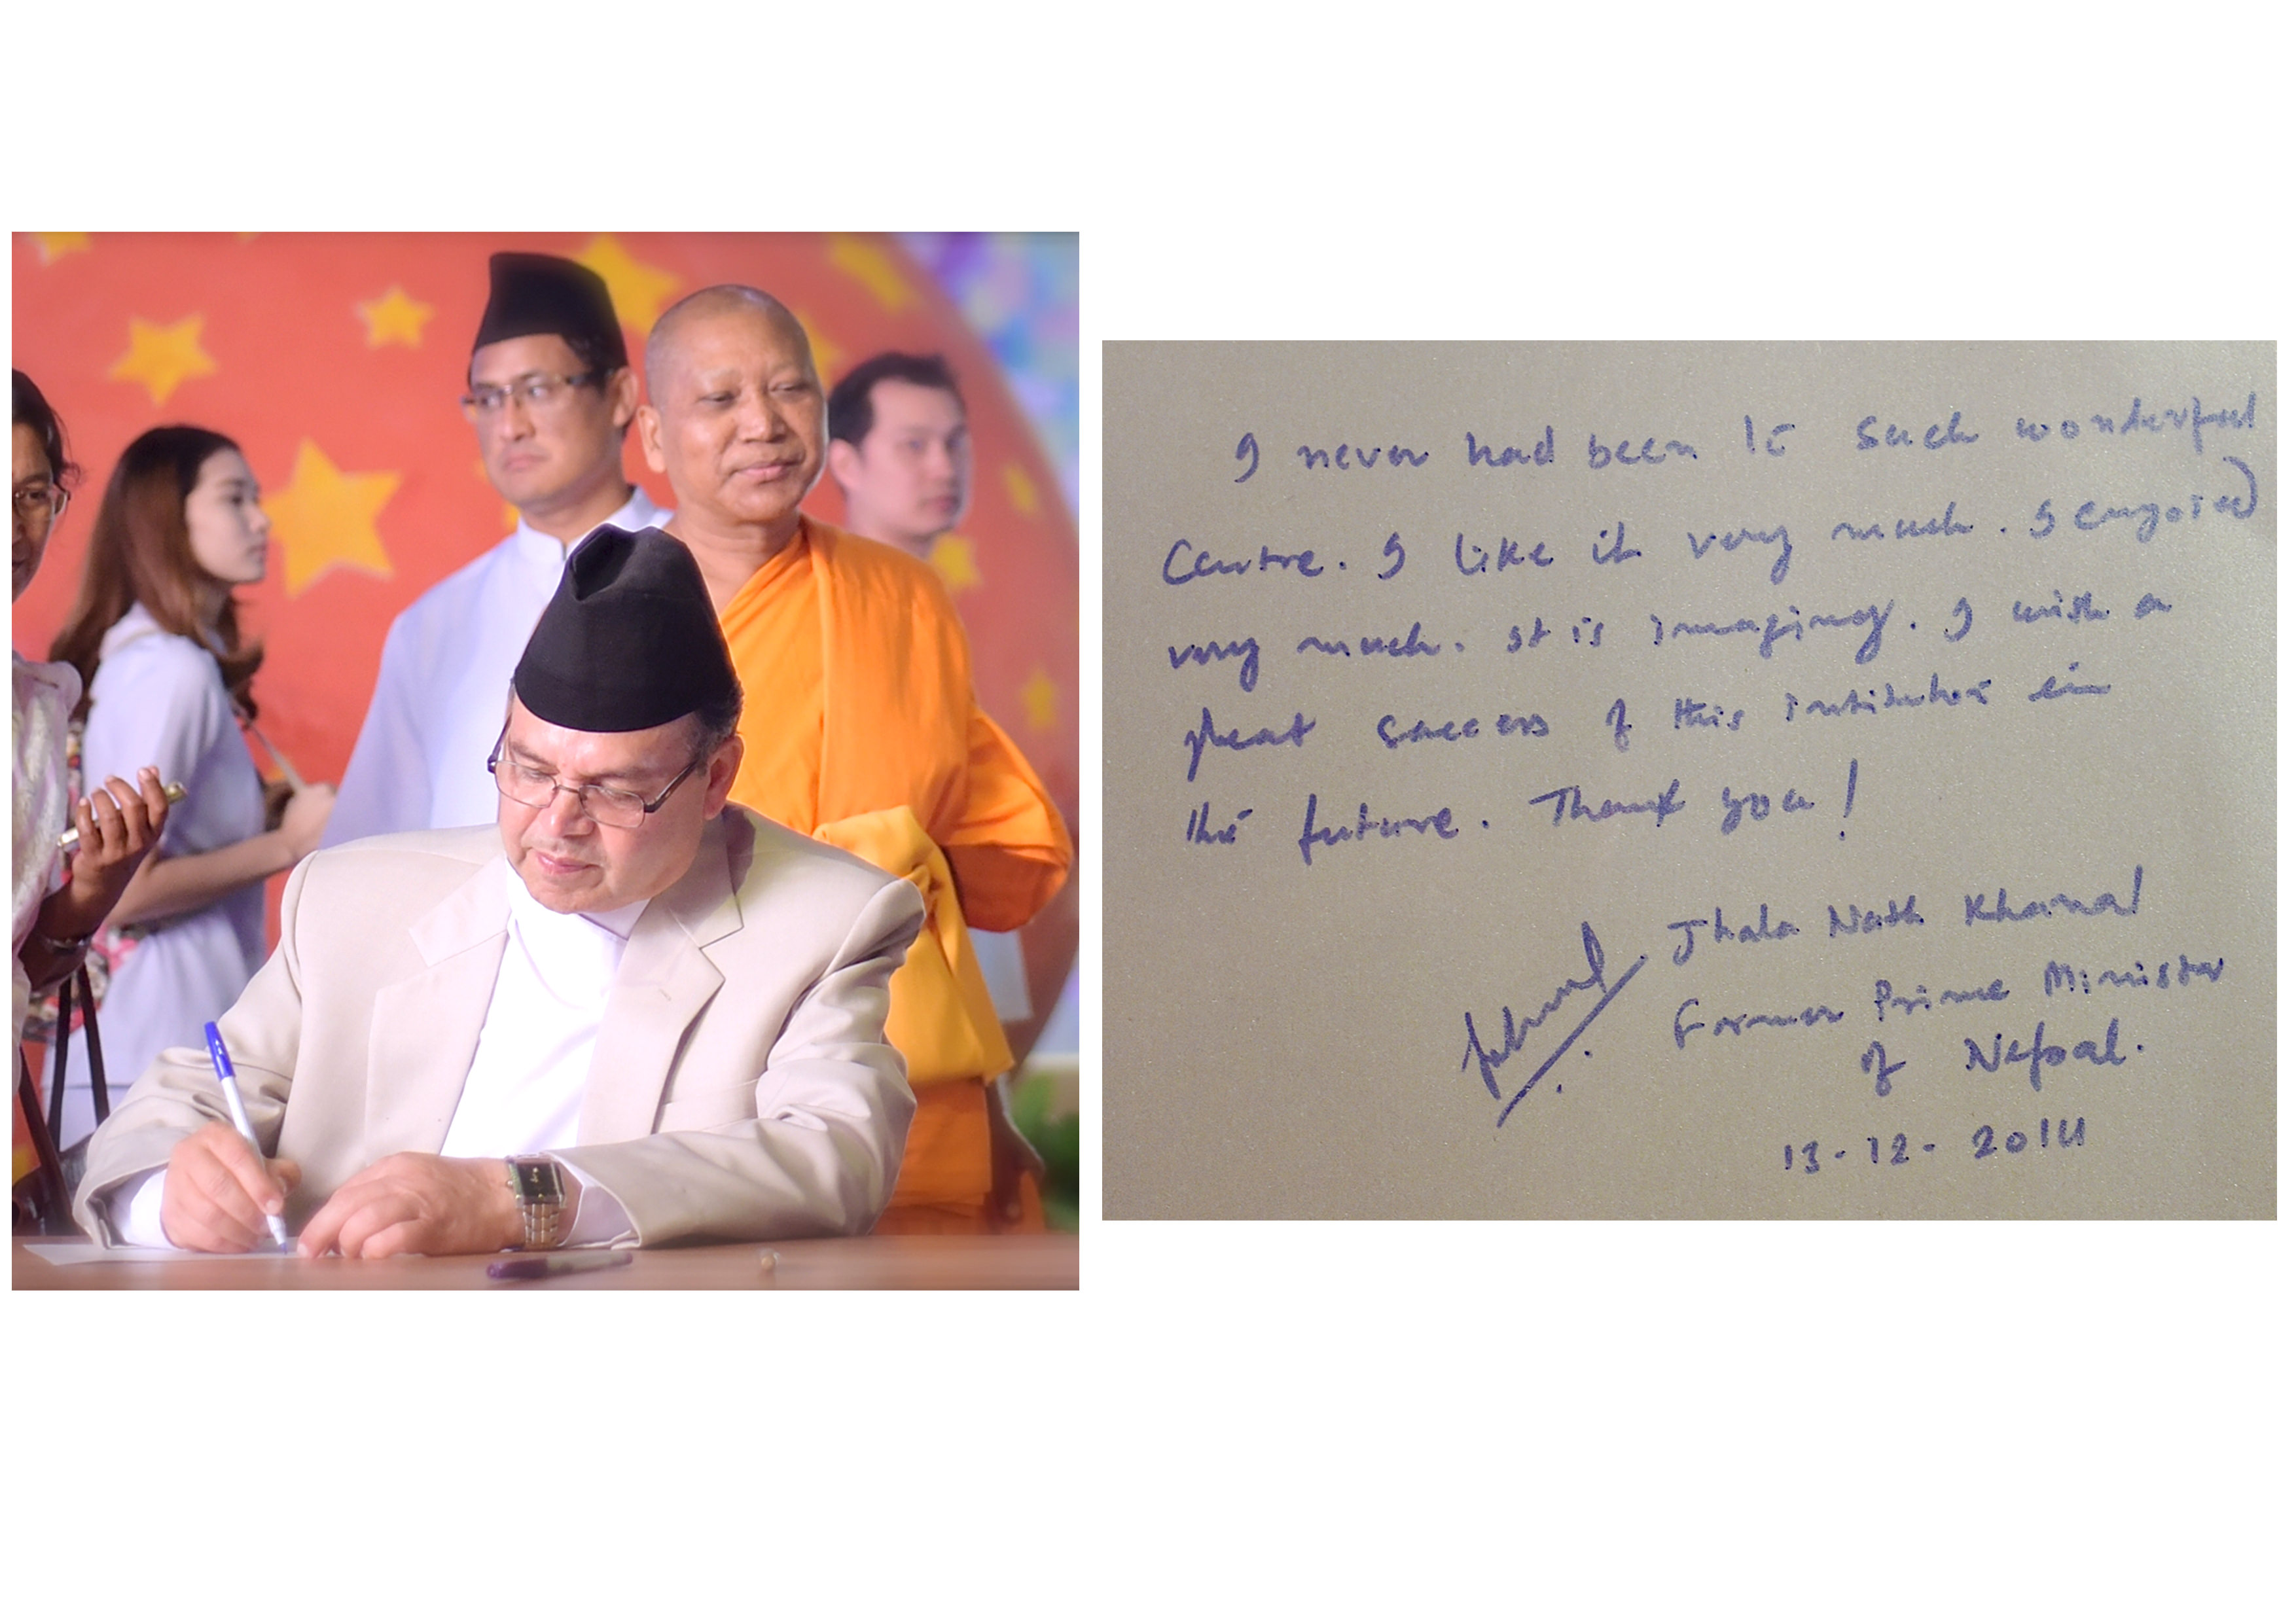 I never had been to such wonderful
Centre. I like it very much. I engoied
very much. It is imaging. I wish a
great success of this intitution in
the future. Thank you!
Jhala Nath Khanal
Former Prime Minister
of Nepal.
13-12-2014